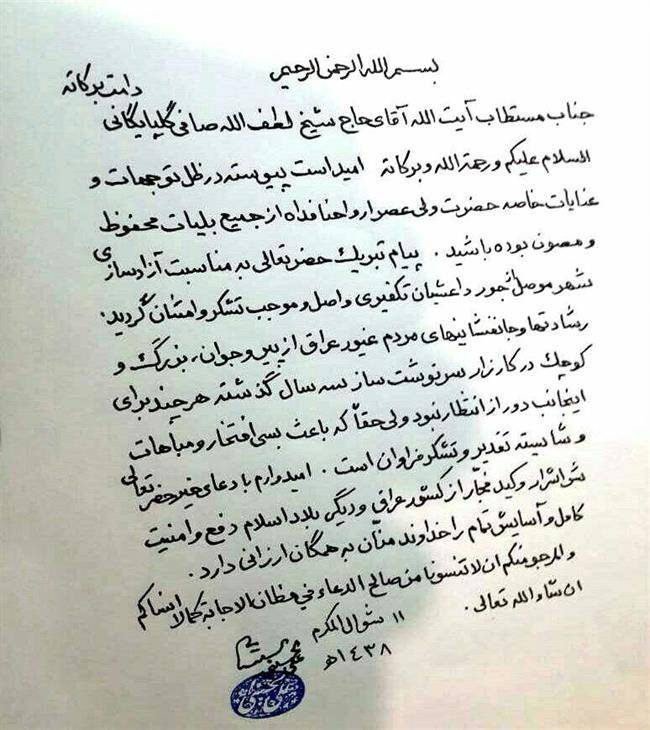 بسم الله الرحمن الرحیم
دامت برکاته
جناب مستطاب آیت الله آقای حاج شیخ لطف الله صافی گلپایگانی
السلام علیکم ورحمة الله وبرکاته امید است پیوسته در ظل توجهات و
عنایات خاصه حضرت ولی عصر ارواحنا فداه از جمیع بلیات محفوظ
و مصون بوده باشید . پیام تبریک حضرتعالی به مناسبت آزادسازی
شهر موصل از جور داعشیان تکفیری واصل و موجب تشکر وامتنان گردید.
رشادتها و جانفشانیهای مردم غیور عراق از پیر و جوان، بزرگ و
کوچک در کارزار سرنوشت ساز سه سال گذشته هر چند برای
اینجانب دور از انتظار نبود ولی حقّاً که باعث بسی افتخار و مباهات
و شایسته تقدیر و تشکر فراوان است . امیدوارم با دعای خیر حضرتعالی
شرّ اشرار و کید فجّار از کشور عراق و دیگر بلاد اسلام دفع و امنیت
کامل و آسایش تمام را خداوند منّان به همگان ارزانی دارد .
والمرجو منکم ان لا تنسونا من صالح الدعاء في مظان الاجابة کما لا انساکم
ان شاء الله تعالی .
١١ شوال المکرم
١٤٣٨ هـ